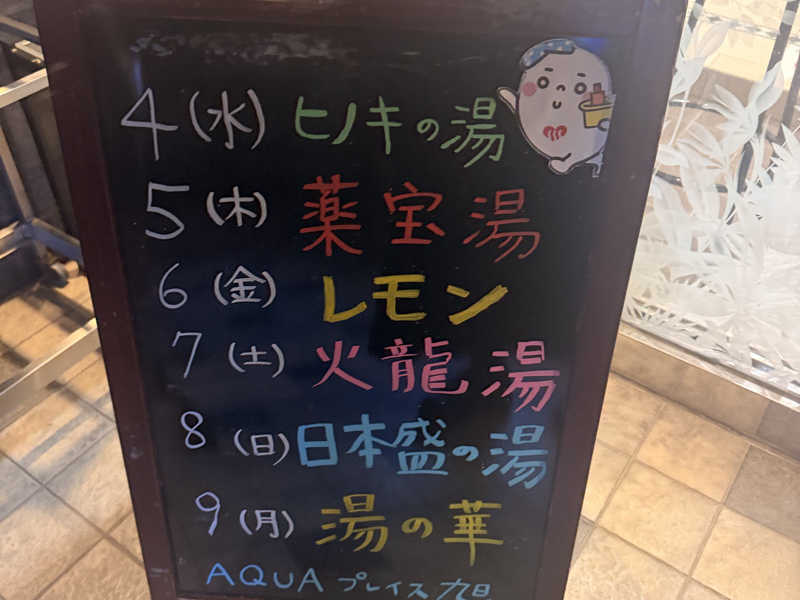 4(水) ヒノキの湯
5(木) 薬宝湯
6(金) レモン
7(土) 火龍湯
8(日) 日本盛の湯
9(月) 湯の華
AQUA プレイス旭